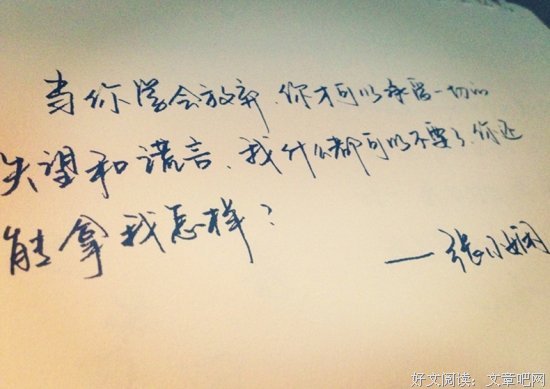 当你学会放弃、你才可以承受一切的
失望和谎言、我什么都可以不要了、你还
能拿我怎样?
——张小娴
好文阅读:文章吧网